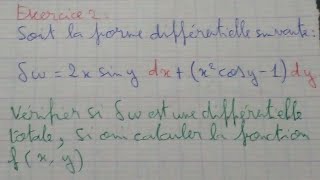 Exercice 2:
Soit la forme différentielle suivante:
δω = 2x sin y dx + (x² cos y - 1) dy
Vérifier si δω est une différentielle
totale, si oui calculer la fonction
f(x, y)